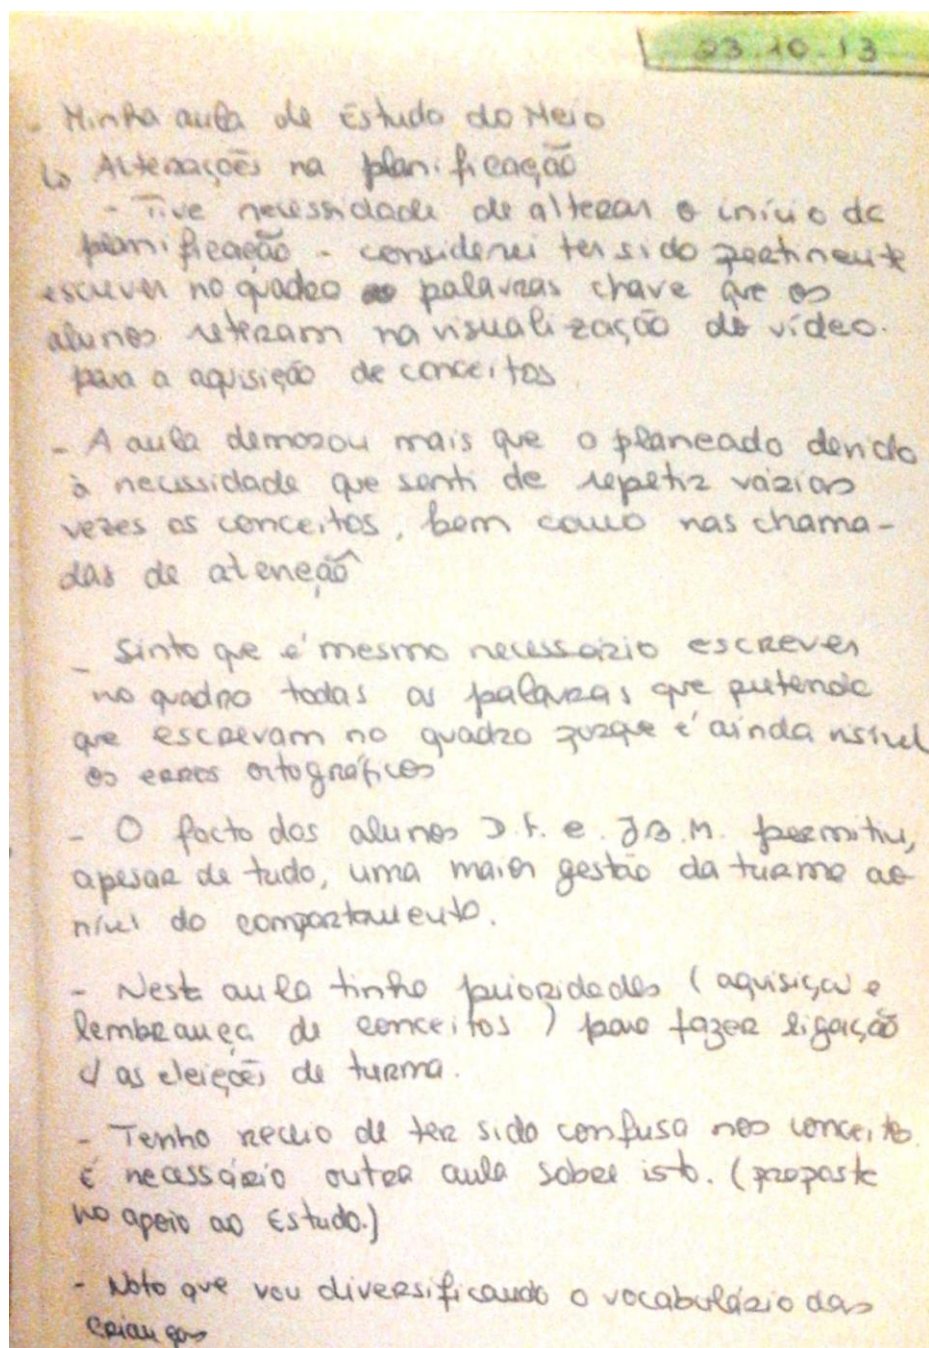 23.10.13
- Minha aula de Estudo do Meio
↳ Alterações na planificação
- Tive necessidade de alterar o início da
planificação - considerei ter sido pertinente
escrever no quadro as palavras chave que os
alunos retiram na visualização do vídeo.
para a aquisição de conceitos
- A aula demorou mais que o planeado devido
à necessidade que senti de repetir vários
vezes os conceitos, bem como nas chama-
das de atenção
- Sinto que é mesmo necessário escrever
no quadro todas as palavras que pretendo
que escrevam no quadro porque é ainda visível
os erros ortográficos
- O facto dos alunos D.F. e J.B.M. permitiu,
apesar de tudo, uma maior gestão da turma ao
nível do comportamento.
- Nesta aula tinha prioridades (aquisição e
lembrança de conceitos) para fazer ligação
c/ as eleições de turma.
- Tenho receio de ter sido confusa nos conceitos.
É necessário outra aula sobre isto. (proposta
no apoio ao Estudo.)
- Noto que vou diversificando o vocabulário das
crianças